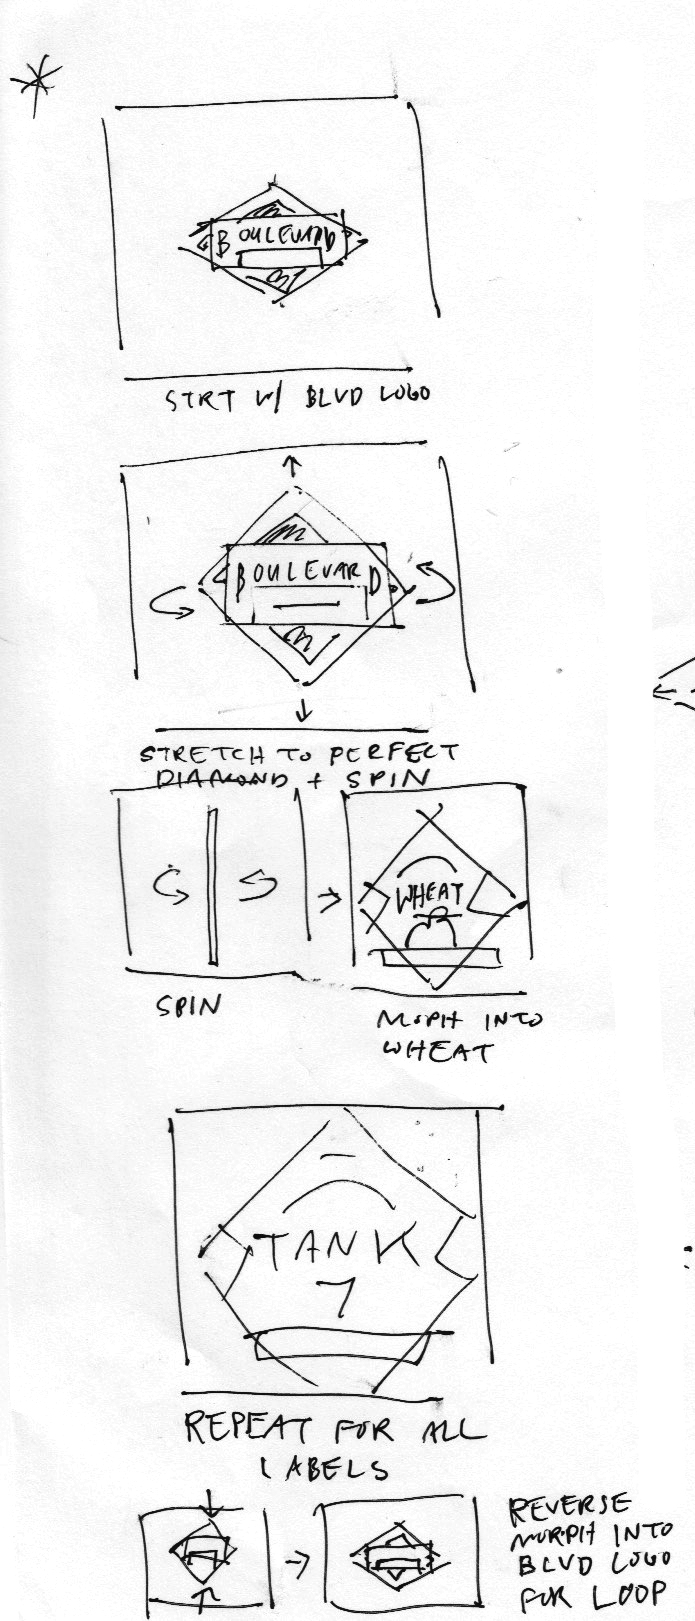 BOULEVARD
STRT W/ BLVD LOGO
BOULEVARD
STRETCH TO PERFECT
DIAMOND + SPIN
WHEAT
SPIN
MORPH INTO
WHEAT
TANK
7
REPEAT FOR ALL
LABELS
REVERSE
MORPH INTO
BLVD LOGO
FOR LOOP